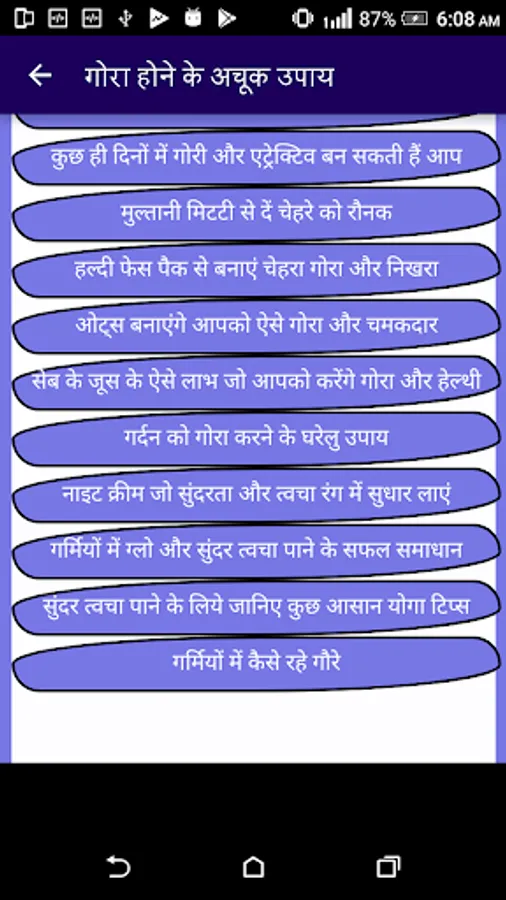 87% 6:08 AM
गोरा होने के अचूक उपाय
कुछ ही दिनों में गोरी और एट्रेक्टिव बन सकती हैं आप
मुल्तानी मिटटी से दें चेहरे को रौनक
हल्दी फेस पैक से बनाएं चेहरा गोरा और निखरा
ओट्स बनाएंगे आपको ऐसे गोरा और चमकदार
सेब के जूस के ऐसे लाभ जो आपको करेंगे गोरा और हेल्थी
गर्दन को गोरा करने के घरेलु उपाय
नाइट क्रीम जो सुंदरता और त्वचा रंग में सुधार लाएं
गर्मियों में ग्लो और सुंदर त्वचा पाने के सफल समाधान
सुंदर त्वचा पाने के लिये जानिए कुछ आसान योगा टिप्स
गर्मियों में कैसे रहे गौरे